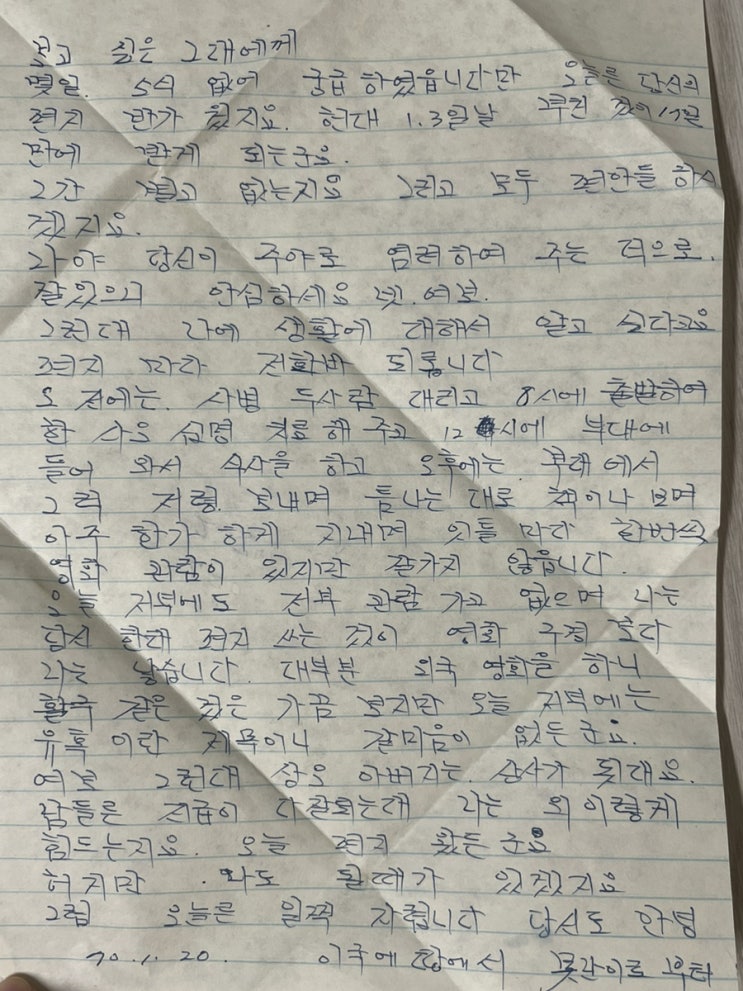 보고 싶은 그대에게
몇일. 소식 없어 궁금 하였읍니다만 오늘은 당신의
편지 반가 웠지요. 헌대 1.3일날
만에 받게 되는군요.
그간 별고 없는지요 그리고 모두 편안들 하시
겠지요.
나야 당신이 주야로 염려하여 주는 덕으로.
잘있으니 안심하세요 녯. 여보.
그런대 나에 생활에 대해서 알고 싶다고요
편지 마다 전하바 되롭니다
오 전에는. 사병 두사람 대리고 8시에 출발하여
한 사오 십명 치료 해 주고 12 시에 부대에
들어 와서 식사을 하고 오후에는. 부대 에서
그럭 저렁. 보내며 틈나는 대로 책이나 보며
아주 한가 하게 지내며 잇틀 마다 한번씩
영화 관람이 있지만 잘가지 않읍니다.
오늘 저녁에도 전부 관람 가고 없으며 나는
당신 한태 편지 쓰는 것이 영화 구경 보다
나는 낳습니다 대부분 외국 영화을 하니
한국 같은 것은 가끔 보지만 오늘 저녁에는
유혹 이란 제목이나 갈마음이 없든군요.
여보 그런대 상오 아버지는. 상사가 됫대요.
남들은 지급이 다잘되는대 나는 왜 이렇게
힘드는지요. 오늘 편지 왔든군요
허지만 나도 될때가 있겠지요
그럼 오늘은 일찍 자렵니다 당신도 안녕
70. 1. 20. 이국에 땅에서 못난이로 부터